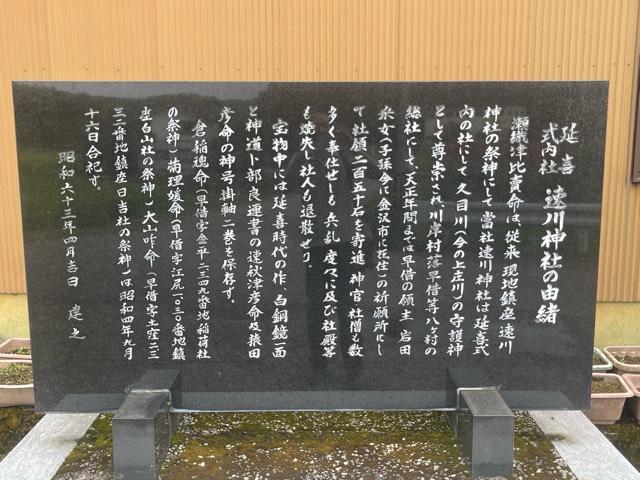 延喜式内社 速川神社の由緒
瀬織津比賣命は、従来、現地鎮座速川
神社の祭神にして當社速川神社は延喜式
内の社にして久目川(今の上庄川)の守護神
として尊崇され、川岸村落早借等八ヶ村の
総社にして、天正年間までは早借の領主 岩田
采女(子孫今に金沢市に在住)の祈願所にし
て社領二百五十石を寄進 神官 社僧も数
多く奉仕せしも 兵乱度々に及び社殿等
も焼失し社人も退散せり。
宝物中には延喜時代の作、白銅鏡一面
と神道卜部良連書の速秋津彦命岐猿田
彦命の神号掛軸一巻を保存す。
倉稲魂命(早借字金平二三四九番地稲荷社
の祭神)菊理媛命(早借字江尻一〇三〇番地鎮
座白山社の祭神)大山咋命(早借字土窪二三
三二番地鎮座日吉社の祭神)は昭和四年九月
十六日合祀す。
昭和六十三年四月吉日 建之